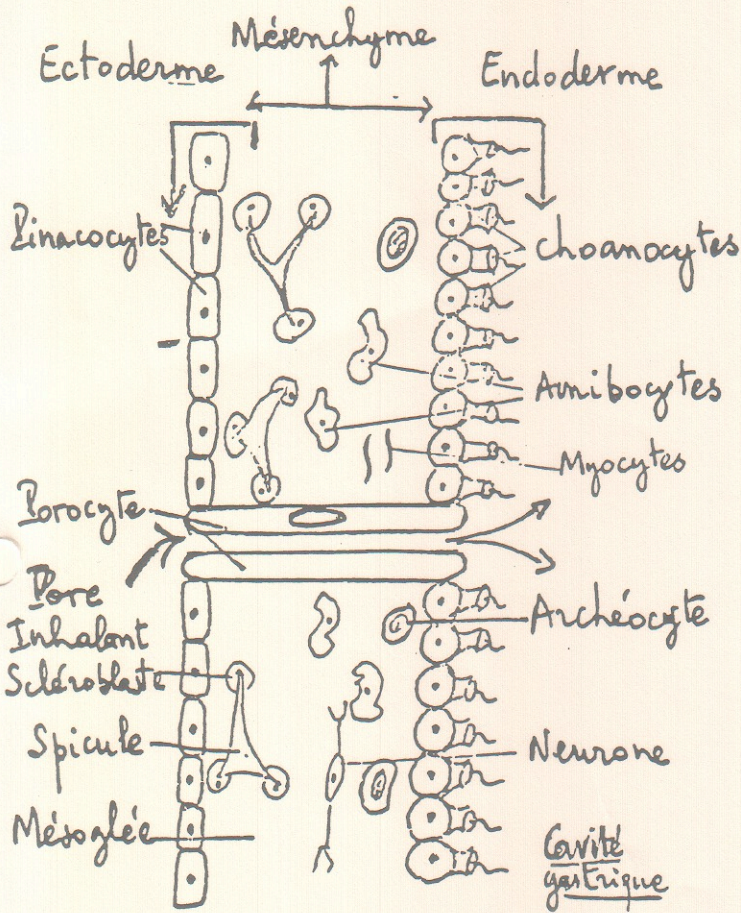 Mésenchyme
Ectoderme
Endoderme
Pinacocytes
Choanocytes
Amibocytes
Myocytes
Porocyte
Pore
Inhalant
Archéocyte
Scléroblaste
Spicule
Neurone
Mésoglée
Cavité
gastrique